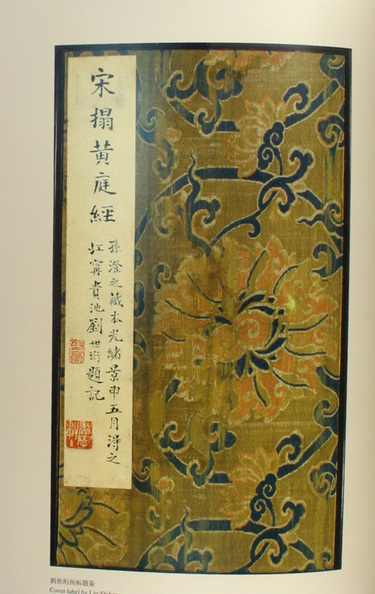 宋搨黃庭經
孫澄之藏本光緒景申五月淂之
江寧貴池劉世珩題記
劉世珩面板題簽
Cover label by Liu